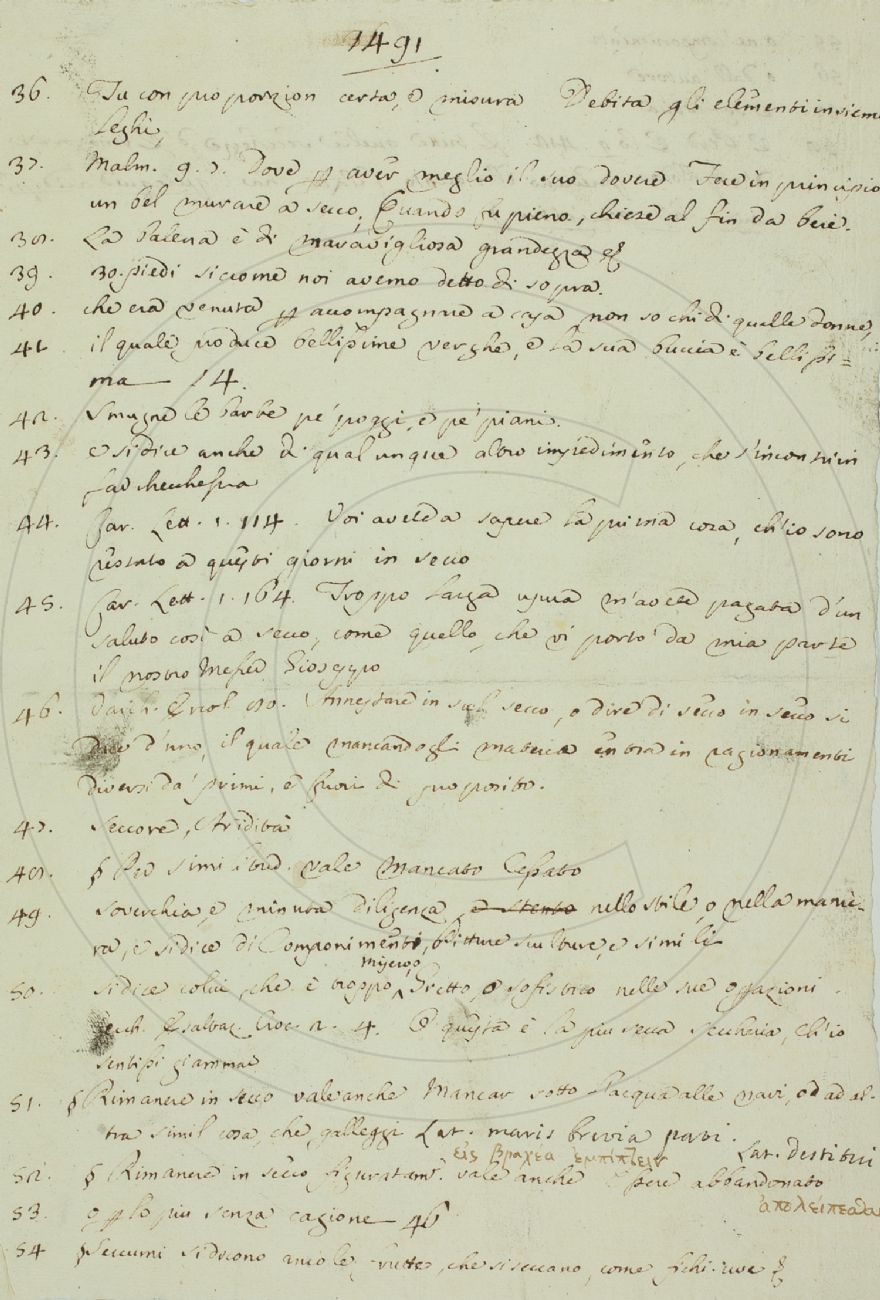 1491
36. Tu con proporzion certa, e misura Debita gli elementi insieme
Leghi,
37. Malm. 9. 7. Dove ꝑ aver meglio il suo dovere Fece in principio
un bel murare a secco, Quando fu pieno, chiese al fin da bere.
38. La balena è di maravigliosa grandezza
39. 30. piedi siccome noi avemo detto di sopra.
40. che era venuta ꝑ accompagnare a casa non so chi di quelle donne,
41. il quale produce bellissime verghe, e la sua buccia è bellissi=
ma — 14.
42. Smugne le barbe pe' poggi, e pe' piani.
43. e si dice anche di qualunque altro impedimento, che s'incontri in
far checchessia
44. Car. Lett. 1. 114. Voi avete a sapere la prima cosa, ch'io sono
restato a questi giorni in secco
45. Car. Lett. 1. 164. Troppo larga usura m'avete pagata d'un
saluto così a secco, come quello, che vi portò da mia parte
il nostro Messer Gioseppo
46. Varch. Ercol. 80. Annestare in sul secco, o dire di secco in secco si
dice d'uno, il quale mancandogli materia entra in ragionamenti
diversi da' primi, e fuori di proposito.
47. Seccore, Aridità
48. § Per simil. vale Mancato Cessato
49. soverchia, e minuta diligenza, e stento nello stile, o nella manie-
ra, e si dice di Componimenti, Pitture sculture, e simili
misero,
50. si dice colui, che è troppo stretto, o sofistico nelle sue operazioni.
4. E questa è la più secca seccheria, ch'io
sentissi giammai
51. § Rimanere in secco vale anche Mancar sotto l'acqua alle navi, od ad al-
tra simil cosa, che galleggi Lat. maris brevia pati.
εἰς βραχέα ἐμπίπτειν
Lat. destitui
52. § Rimanere in secco figuratam. vale anche Essere abbandonato
ἀπολείπεσθαι
53. o ꝑ lo più senza cagione — 46
54 § Seccumi si dicono anco le frutte, che si seccano, come fichi. uve